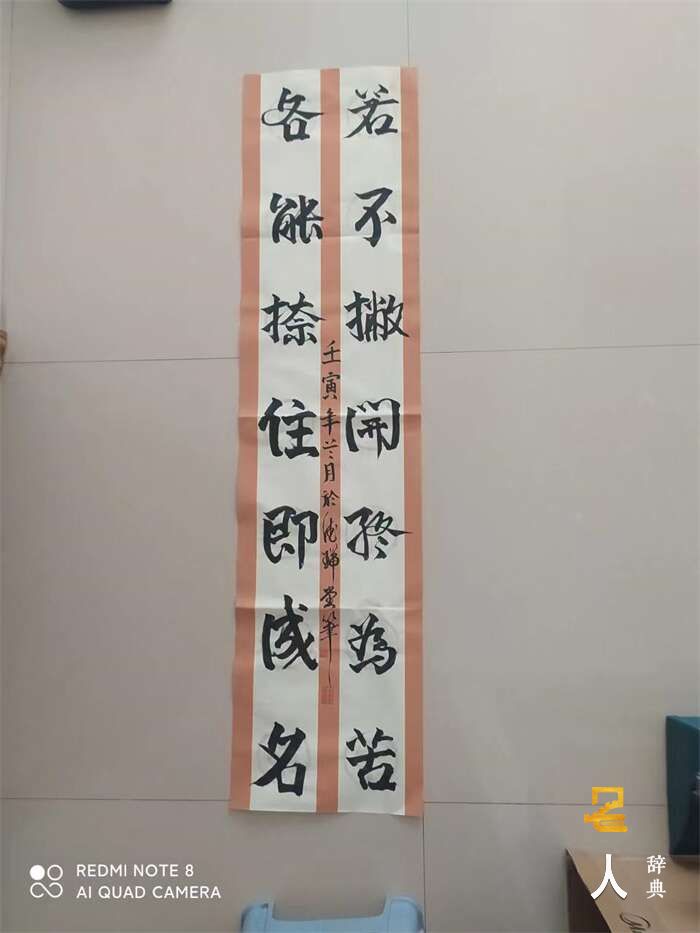 若不撇開終為苦
各能捺住即成名
壬寅年兰月於德瑞堂筆
REDMI NOTE 8
AI QUAD CAMERA
人
辞典